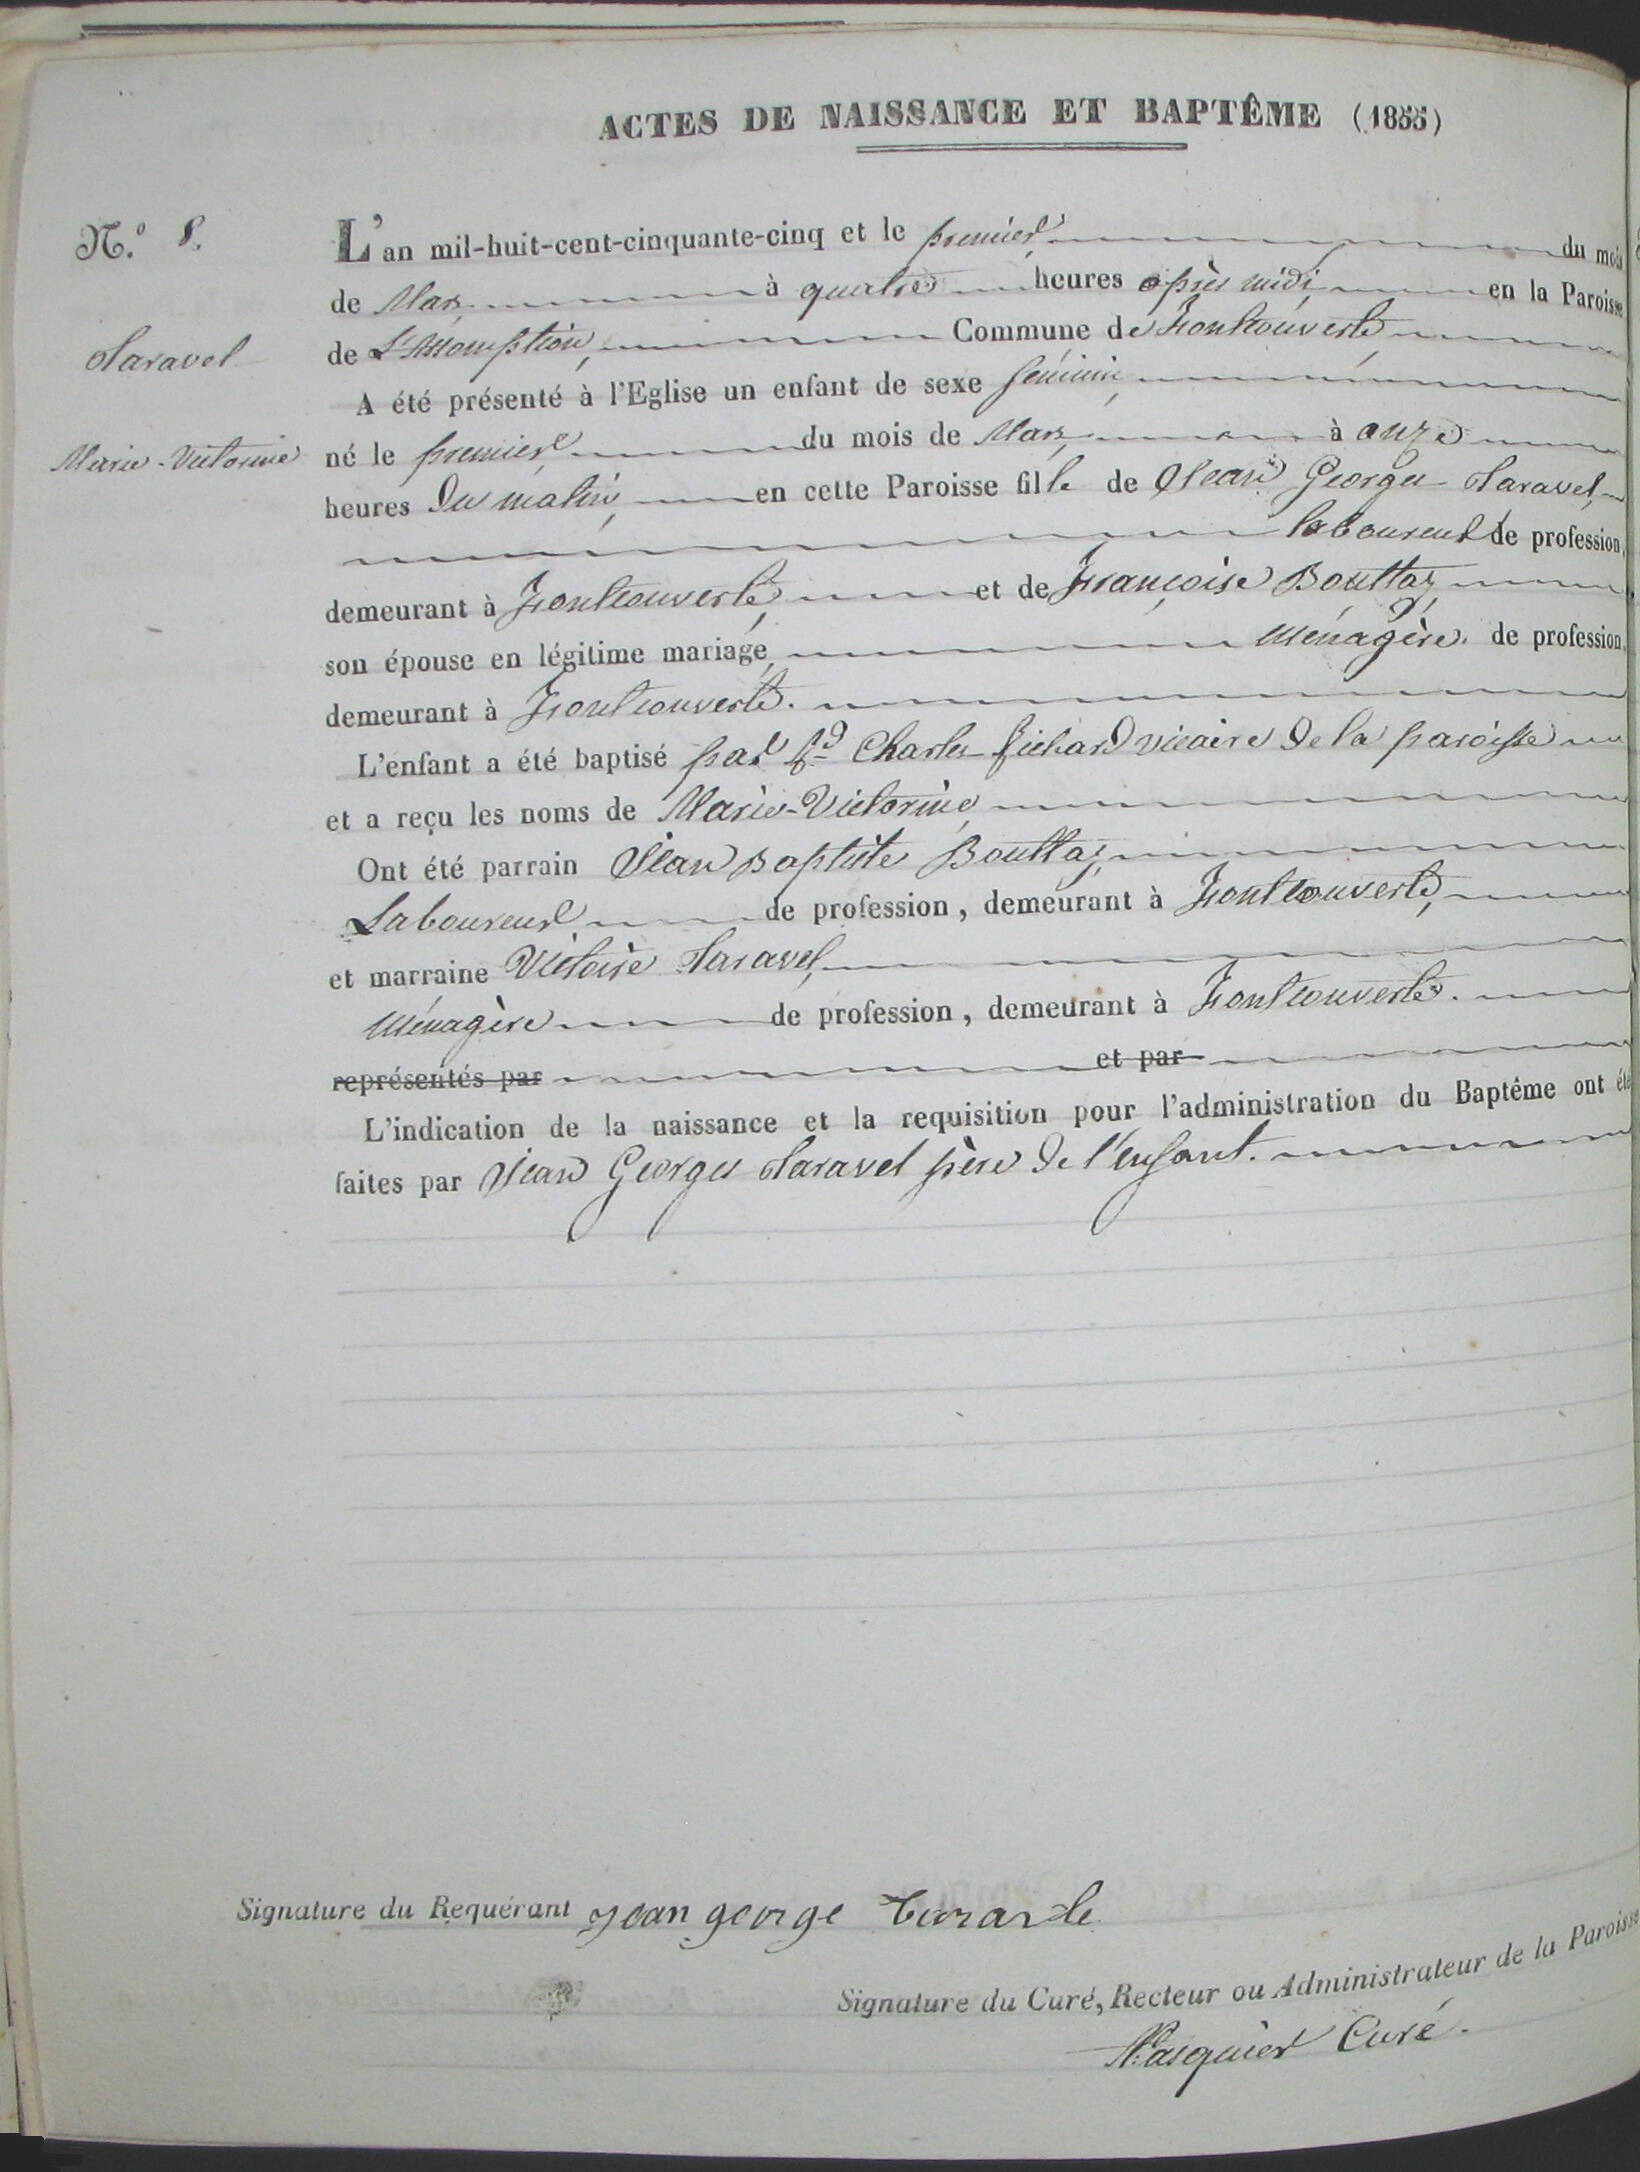 ACTES DE NAISSANCE ET BAPTÊME (1855)
N.º 8.
L'an mil-huit-cent-cinquante-cinq et le premier du mois
de Mars à quatre heures après midi en la Paroisse
Taravel
de L'Assomption, Commune de Fontcouverte
A été présenté à l'Eglise un enfant de sexe féminin,
Marie-Victorine
né le premier du mois de Mars, à onze
heures du matin, en cette Paroisse fille de Jean George Taravel,
laboureur de profession,
demeurant à Fontcouverte, et de Françoise Bouttaz,
son épouse en légitime mariage, Ménagère. de profession,
demeurant à Fontcouverte.
L'enfant a été baptisé par Rd Charles Richard vicaire de la paroisse
et a reçu les noms de Marie-Victorine,
Ont été parrain Jean Baptiste Bouttaz,
Laboureur de profession, demeurant à Fontcouverte,
et marraine Victoire Taravel,
Ménagère de profession, demeurant à Fontcouverte.
représentés par et par
L'indication de la naissance et la requisition pour l'administration du Baptême ont été
faites par Jean George Taravel père de l'enfant.
Signature du Requérant jean george
Signature du Curé, Recteur ou Administrateur de la Paroisse
Pasquier Curé.